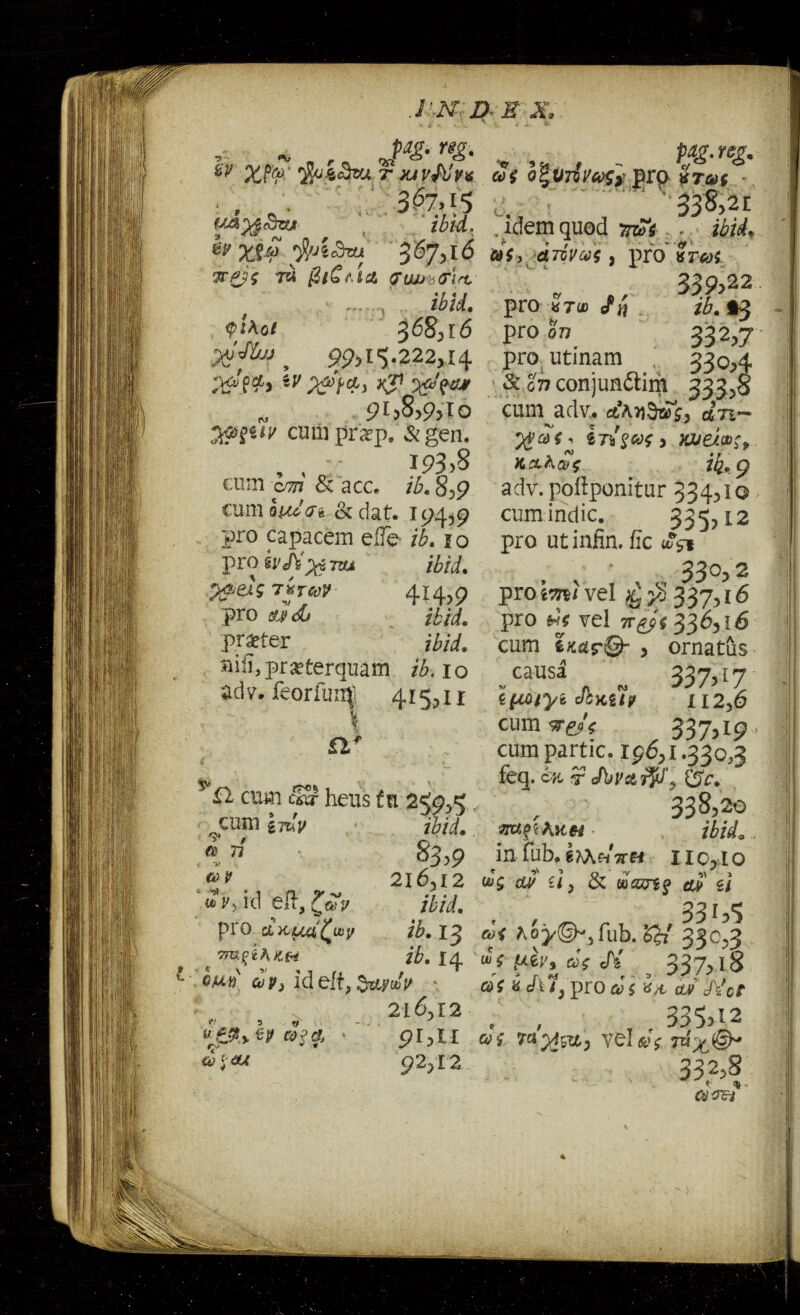 INDEX.
pag. reg.
ἐν χρῷ γίνεσθαι τ κινδύνȣ
367,15
μάχεσθαι ibid.
ἐν χρῷ γίνεσθαι 367,16
πρὸς τὰ βιβλία
ibid.
φίλοι 368,16
99,15.222,14
χώρα, ἐν χώρᾳ,
91,8,9,10
χωρεῖν cum præp. & gen.
193,8
cum ἐπὶ & acc. ib. 8,9
cum & dat. 194,9
pro capacem esse ib. 10
pro ἐνδέχεται ibid.
χωρὶς τȣ́των 414,9
pro ἄνδυ ibid.
præter ibid.
nisi, præterquam ib. 10
adv. seorsum 415,11
Ω
Ω cum heus tu 259,5
cum ἐτὰν ibid.
ὦ τί 83,9
ὢν 216,12
ὢν, id est, ζῶν ibid.
pro ἀκμάζων ib. 13
παρέλκει ib. 14
ὠμὴ ὢν, id est,
216,12
ὥρα, ἐν ὥρᾳ 91,11
92,12
pag. reg.
ὡς ὀξύτινως, pro ȣ̔́τως
338,21
idem quod πῶς ibid.
ὡς, ἀτίνως, pro ȣ̔́τως
339,22
pro ȣ̔́τω δὴ ib. 23
pro ὅτι 332,7
pro utinam 330,4
& ὅτι conjunctim 333,8
cum adv. ἀληθῶς, ἀτε-
χνῶς, ἐτέρως, κυρίως,
καλῶς ib. 9
adv. postponitur 334,10
cum indic. 335,12
pro ut infin. sic ὥστε
330,2
pro ἐπεὶ vel 337,16
pro εἰς vel πρὸς 336,16
cum ἕκαστος, ornatûs
causâ 337,17
ἐμοίγε δοκεῖν 112,6
cum πρὸς 337,19
cum partic. 196,1.330,3
seq. ἐκ τ &c.
338,20
παρέλκει ibid.
in sub. ἐλλείπει 110,10
ὡς ἂν εἰ, & ὥσπερ ἂν εἰ
331,5
ὡς λόγος, sub. 330,3
ὡς μὲν, ὡς δὲ 337,18
pro ὡς ȣ̓κ ἂν
335,12
ὡς τάχιστα, vel ὡς τάχος
332,8
ὡσεὶ